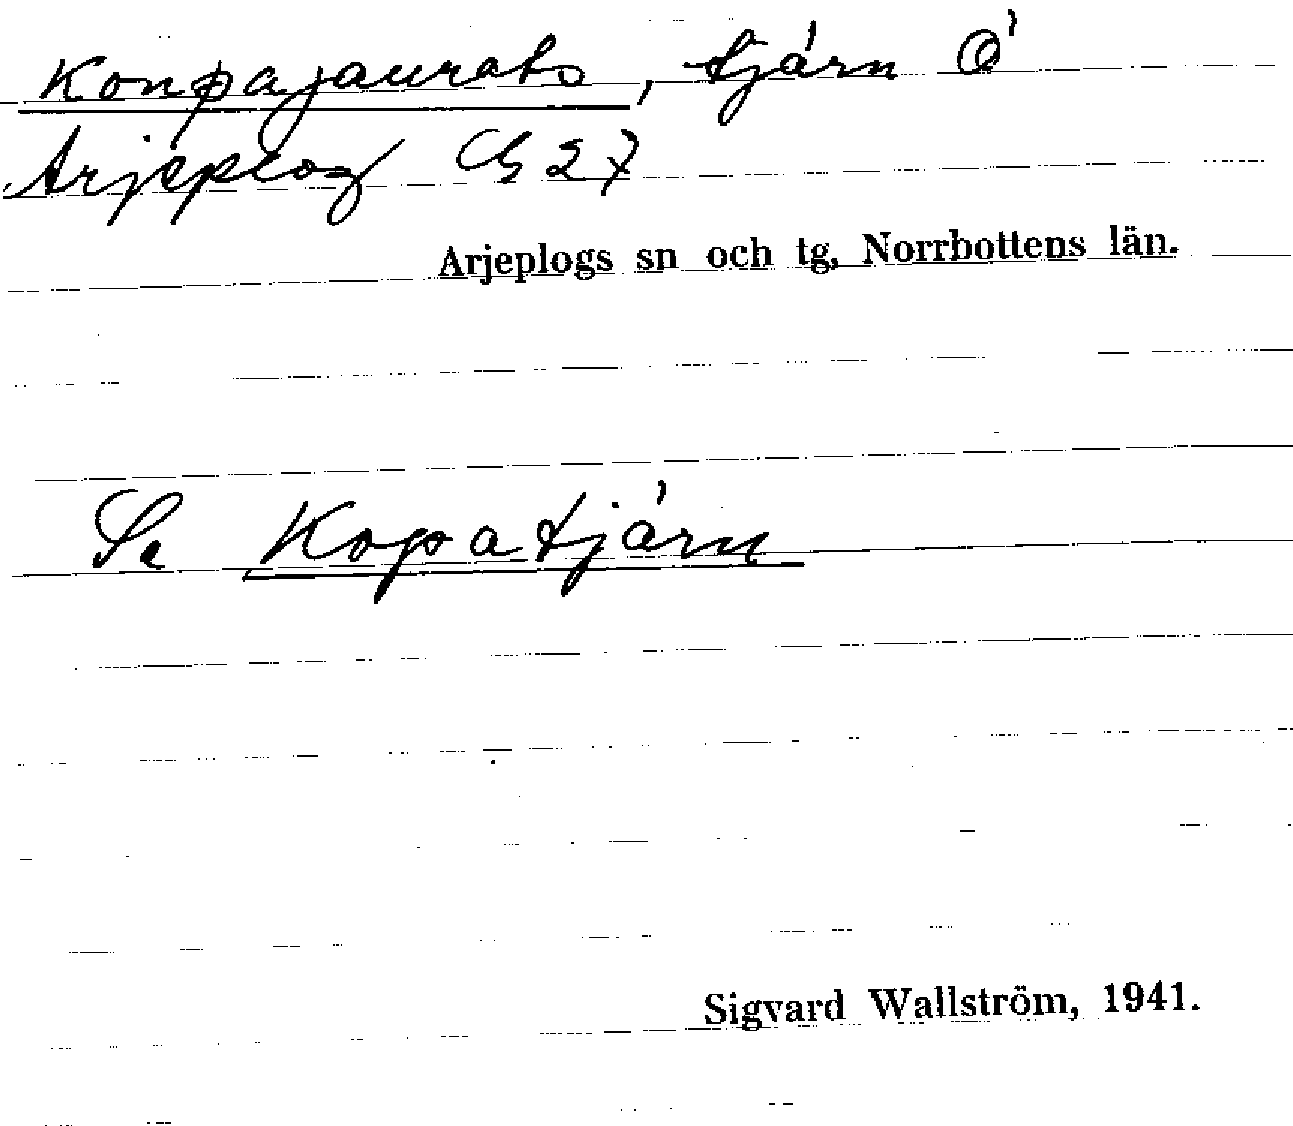 Konpajauratj, tjärn Ö
Arjeplog C 27
Arjeplogs sn och tg, Norrbottens län.
Se Kopatjärn
Sigvard Wallström, 1941.